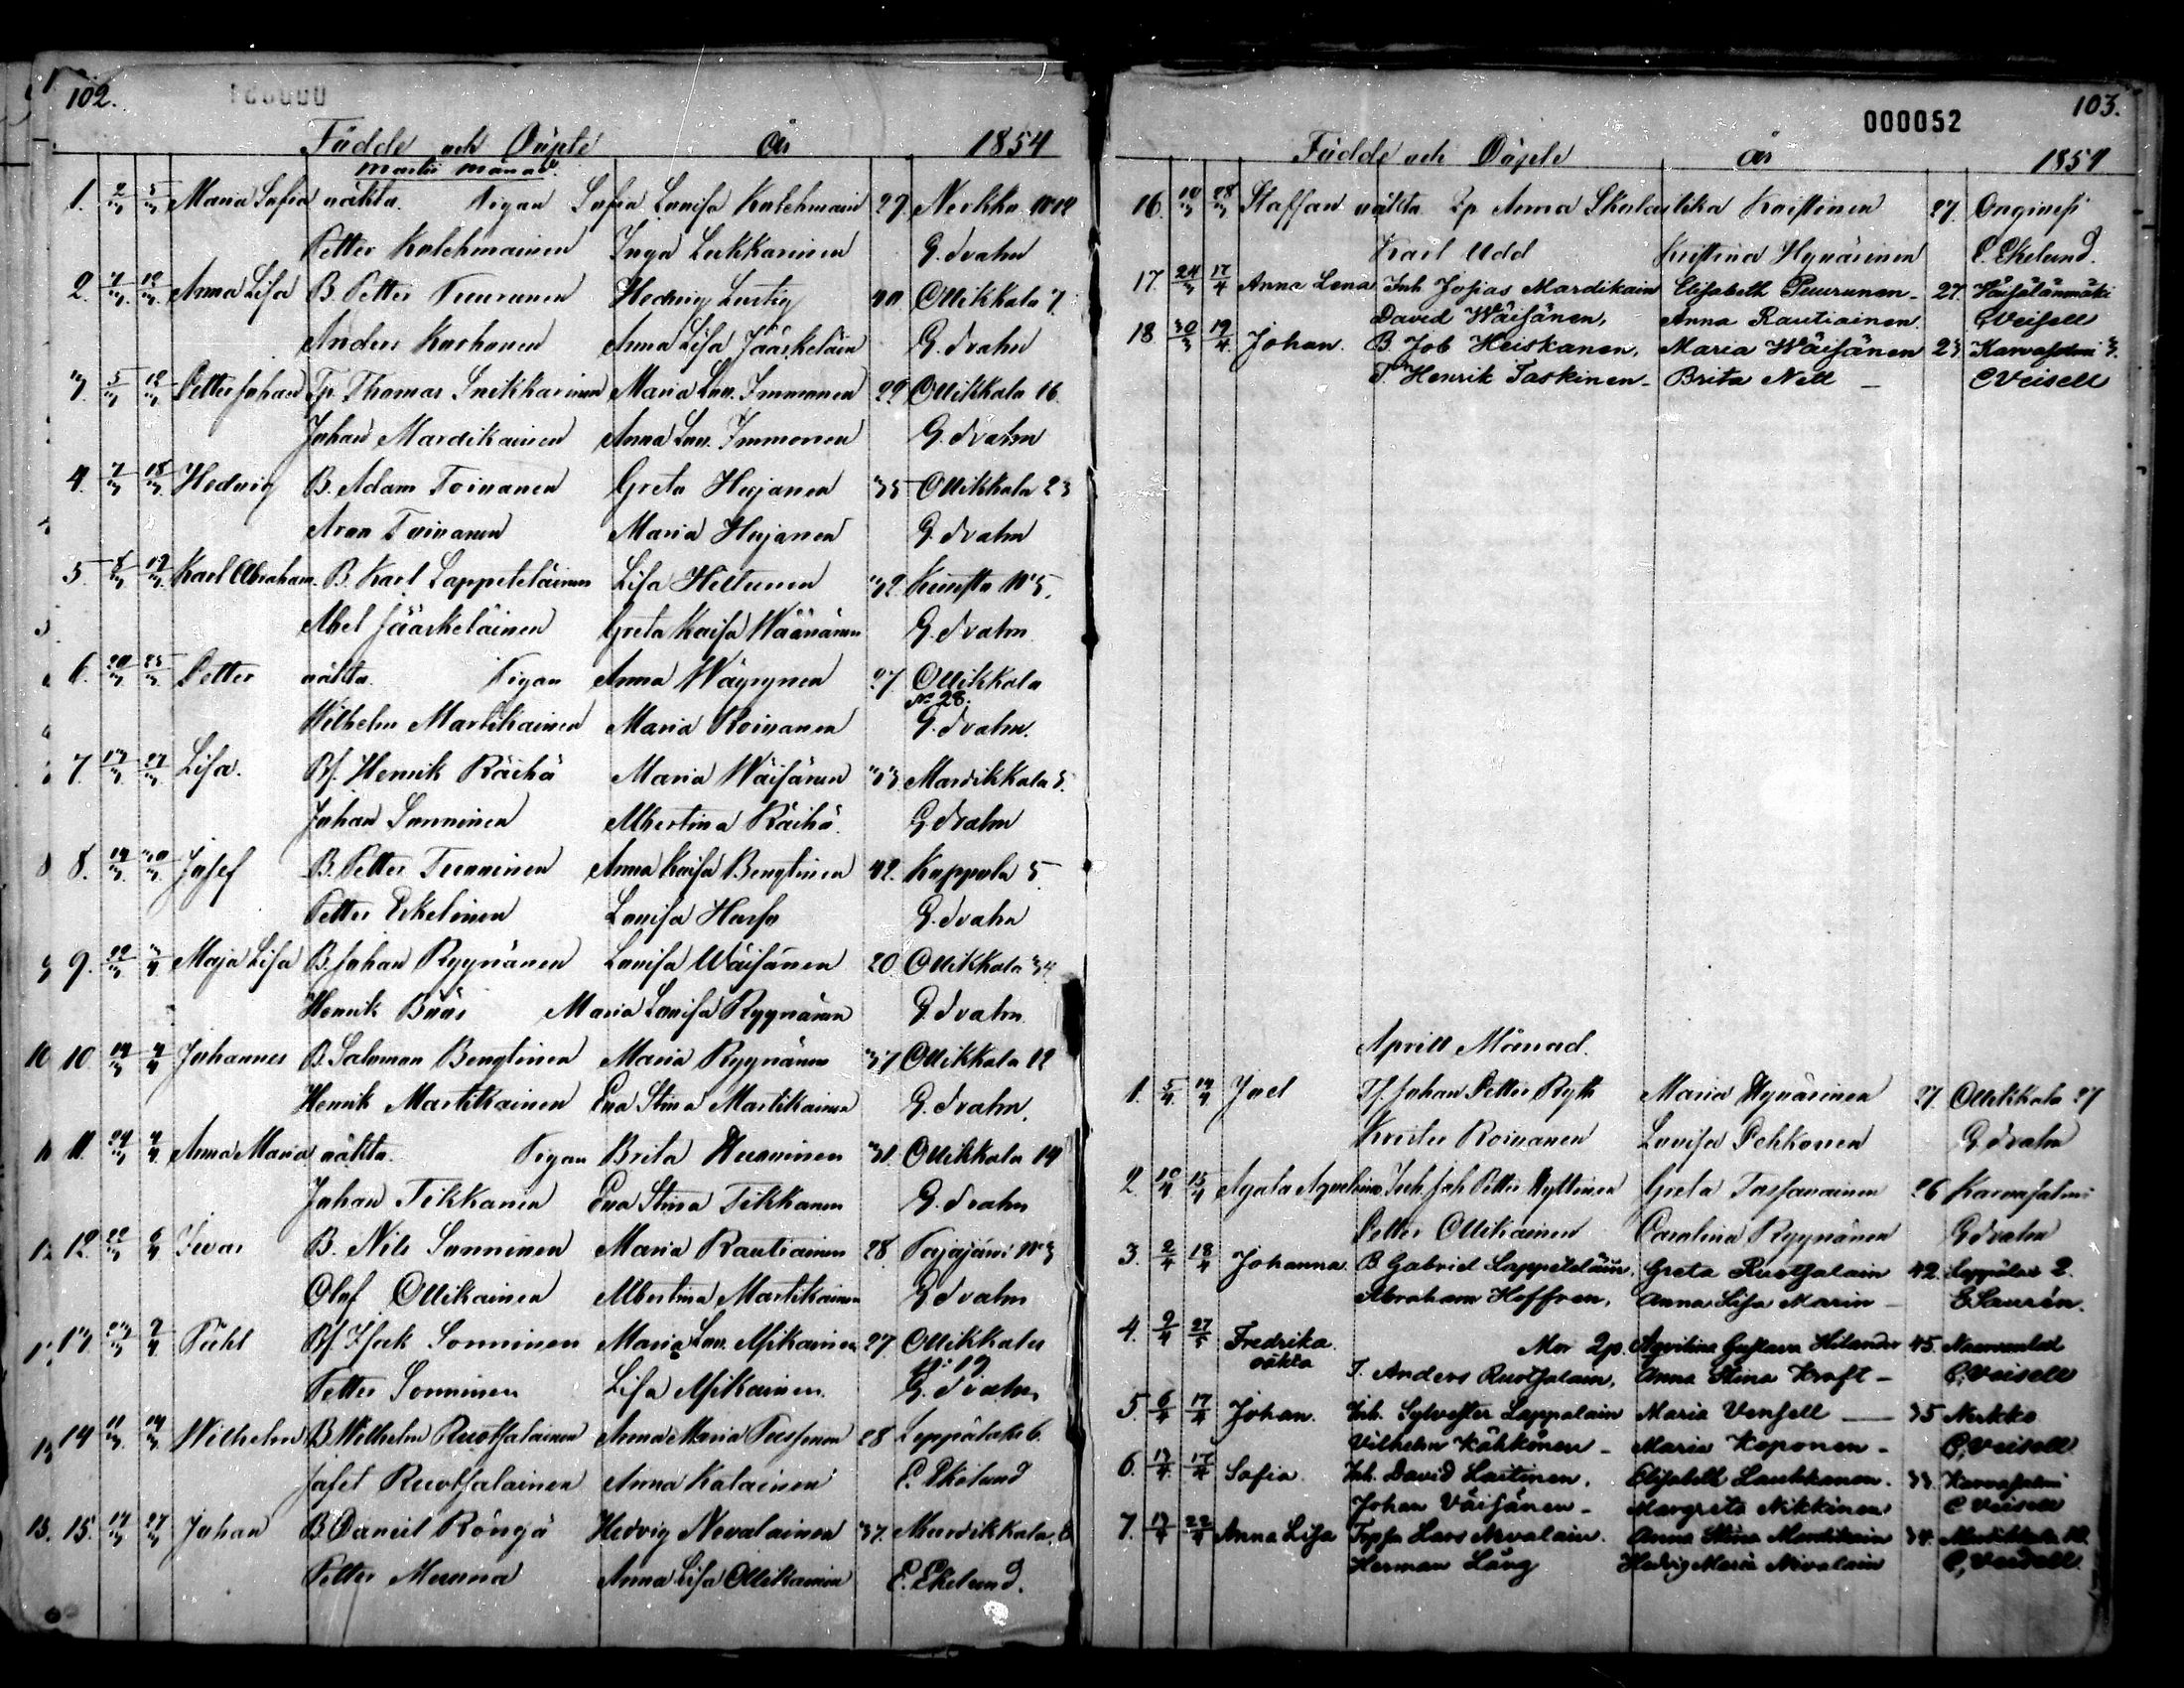 102.
Födde och Döpte år 1854
Martii månad.
1. 2/3 5/3 Maria Sofia oäkta. Pigan Sofia Lovisa Kolehmain 27 Nerkko No 12
Petter Kolehmainen Inga Lukkarinen G. Avahn
2. 7/3 12/3 Anna Lisa B. Petter Tuuranen Hedvig Lustig 40 Ollikkala 7.
Anders Karhonen Anna Lisa Jääskeläin G. Avahn
3. 5/3 12/3 Petter Johan Tp. Thomas Snikkarinen Maria Lov. Immonen 29 Ollikkala 16.
Johan Mardikainen Anna Lov. Immonen G. Avahn
4. 7/3 18/3 Hedvig B. Adam Toivanen Greta Hujanen 35 Ollikkala 23
Aron Toivanen Maria Hujanen G. Avahn
5. 8/3 19/3 Karl Abraham. B. Karl Lappeteläinen Lisa Hiltunen 32. No 5.
Abel Jääskeläinen Greta Kaisa Wäänänen G. Avahn
6. 20/3 25/3 Petter oäkta. Pigan Anna Wäyrynen 27 Ollikkala
No 28.
Wilhelm Martikainen Maria Roivanen G. Avahn.
7. 13/3 27/3 Lisa. Bf. Henrik Räihä Maria Wäisänen 33. Mardikkala 5.
Johan Sonninen Albertina Räihä. G. Avahn
8 8. 14/3 30/3 Josef B. Petter Tuuninen Anna Kaisa Bengtinen 42. Koppola 5.
Petter Eskelinen Lovisa Harfa G. Avahn
9. 22/3 3/4 Maja Lisa B. Johan Ryynänen Lovisa Wäisänen 20 Ollikkala 34
Henrik Bäär Maria Lovisa Ryynänen G. Avahn
10 10. 14/3 4/4 Johannes B. Salomon Bengtinen Maria Ryynänen 37 Ollikkala 12
Henrik Martikainen Eva Stina Martikainen G. Avahn.
11. 24/3 4/4 Anna Maria oäkta. Pigan Brita Huuninen 31. Ollikkala 14
Johan Tikkanen Eva Stina Tikkanen G. Avahn
12 12. 22/3 6/4 Ivar B. Nils Sonninen Maria Rautiainen 28. No 3
Olof Ollikainen Albertina Martikainen G Avahn
13. 23/3 7/4 Pehl Bf. Isak Sonninen Maria Lov. Asikainen 27 Ollikkala
No 19
Petter Sonninen Lisa Asikainen. G. Avahn
14 11/3 14/3 Wilhelm B. Wilhelm Ruotsalainen Anna Maria 28 Leppälaks 6.
Jafet Ruotsalainen Anna Kalainen E. Ekelund
15. 15. 17/3 27/3 Johan B. Daniel Röngä Hedvig Nevalainen 37. Mardikkala
Petter Anna Lisa Ollikainen E. Ekelund.
000052 103.
Födde och Döpte år 1854
16. 10/3 28/3 Staffan oäkta Ip Anna Skolastika Kristinen 27. Onginsk
Karl Udd Kristina Hynäsinen E. Ekelund.
17 24/3 17/4 Anna Lena Inh. Josias Mardikain Elisabeth Puurunen - 27. Väisälänmäki
David Wäisänen, Anna Rautiainen. C Veisell
18 30/3 19/4 Johan. B Job Heiskanen. Maria Wäisänen 23 Karvasalmi 3.
T. Henrik Saskinen - Brita Nell - C Veisell
Aprill Månad.
1. 5/4 14/4 Joel Tf. Johan Petter Ryth Maria Hynäsinen 27. Ollikkala 27
Krister Roivanen Lovisa Pohkonen G Avahn
2. 10/4 15/4 Agata Inh. Joh Petter Hyttinen Greta Tossavainen 26 Karvasalmi
Petter Ollikainen Carolina Ryynänen G Avahn
3. 2/4 18/4 Johanna. B Gabriel Lappeteläin. Greta Ruotsalain 42. 2.
Abraham Hoffren. Anna Lisa Marin - E Saurén.
4. 9/4 27/5 Fredrika Mor Ip. Gustava Hilander 45.
oäkta T. Anders Ruotsalain, Anna Stina Kraft - C. Veisell
5. 6/4 17/4 Johan. Inh. Sylvester Lappalain Maria Vensell - 35 Nerkko
Vilhelm Kähkönen - Maria Koponen - C. Veisell
6. 13/4 17/4 Sofia Inh. David Laitinen. Elisabeth Laukkanen. 33 Karvasalmi
Johan Väisänen - Margreta Nikkinen C Veisell
7. 13/4 22/4 Anna Lisa Lars Nevalain. Anna Stina Mardikain 34. Mardikkala 10.
Herman Lång Hedvig Maria Nevalain C, Veisell.